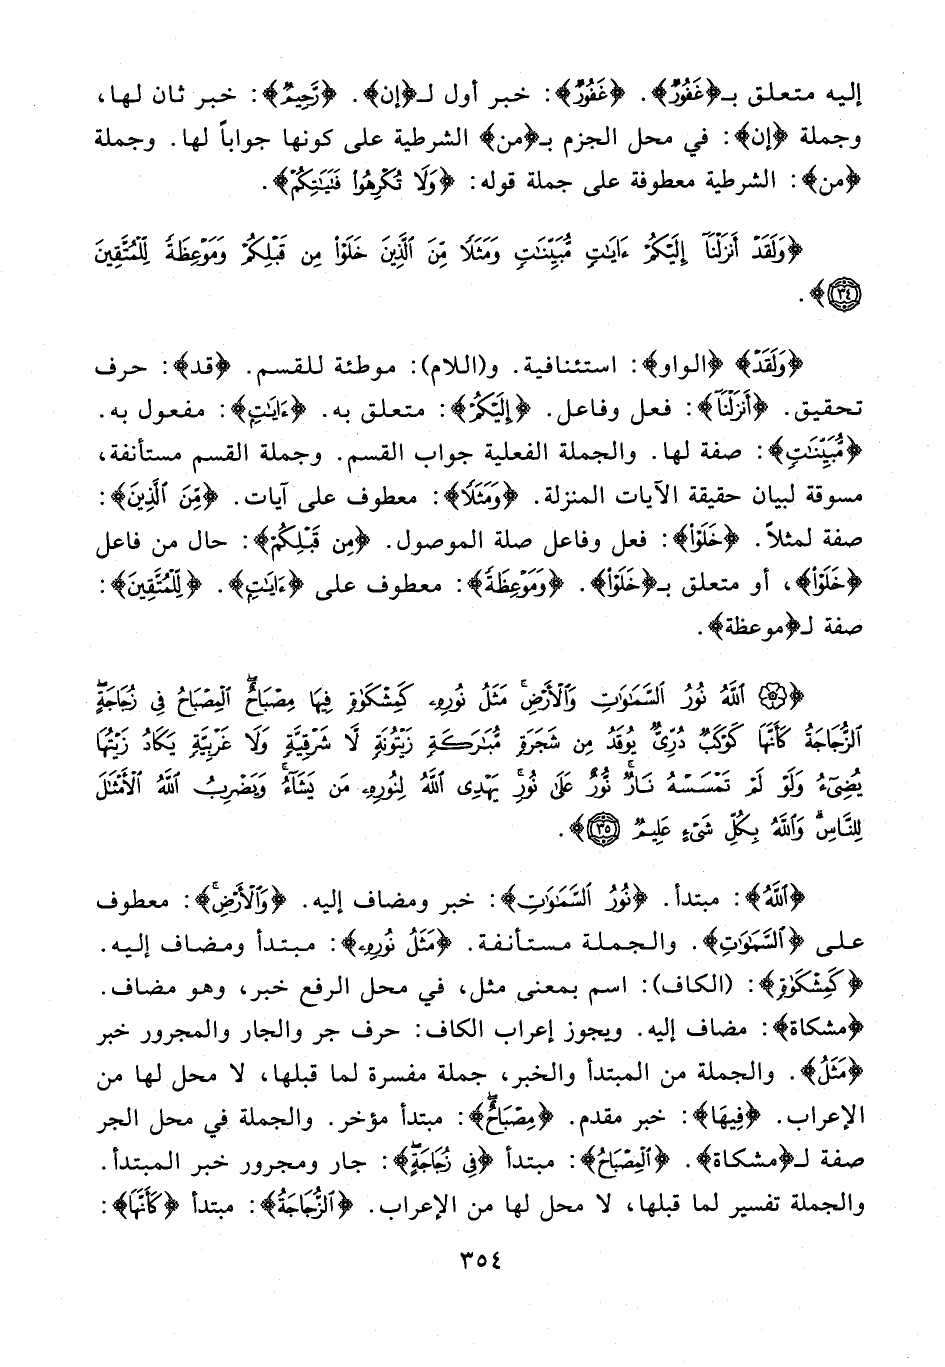 إليه متعلق بـ﴿غَفُورٌ﴾. ﴿غَفُورٌ﴾: خبر أول لـ﴿إن﴾. ﴿رَّحِيمٌ﴾: خبر ثان لها،
وجملة ﴿إن﴾: في محل الجزم بـ﴿من﴾ الشرطية على كونها جواباً لها. وجملة
﴿من﴾: الشرطية معطوفة على جملة قوله: ﴿وَلَا تُكْرِهُواْ فَتَيَٰتِكُمْ﴾.
﴿وَلَقَدْ أَنزَلْنَآ إِلَيْكُمْ ءَايَٰتٍ مُّبَيِّنَٰتٍ وَمَثَلًا مِّنَ ٱلَّذِينَ خَلَوْاْ مِن قَبْلِكُمْ وَمَوْعِظَةً لِّلْمُتَّقِينَ
٣٤﴾.
﴿وَلَقَدْ﴾ ﴿الواو﴾: استئنافية. و(اللام): موطئة للقسم. ﴿قد﴾: حرف
تحقيق. ﴿أَنزَلْنَآ﴾: فعل وفاعل. ﴿إِلَيْكُمْ﴾: متعلق به. ﴿ءَايَٰتٍ﴾: مفعول به.
﴿مُّبَيِّنَٰتٍ﴾: صفة لها. والجملة الفعلية جواب القسم. وجملة القسم مستأنفة،
مسوقة لبيان حقيقة الآيات المنزلة. ﴿وَمَثَلًا﴾: معطوف على آيات. ﴿مِّنَ ٱلَّذِينَ﴾:
صفة لمثلاً. ﴿خَلَوْاْ﴾: فعل وفاعل صلة الموصول. ﴿مِن قَبْلِكُمْ﴾: حال من فاعل
﴿خَلَوْاْ﴾، أو متعلق بـ﴿خَلَوْاْ﴾. ﴿وَمَوْعِظَةً﴾: معطوف على ﴿ءَايَٰتٍ﴾. ﴿لِّلْمُتَّقِينَ﴾:
صفة لـ﴿موعظة﴾.
﴿۞ ٱللَّهُ نُورُ ٱلسَّمَٰوَٰتِ وَٱلْأَرْضِۚ مَثَلُ نُورِهِۦ كَمِشْكَوٰةٍ فِيهَا مِصْبَاحٌۖ ٱلْمِصْبَاحُ فِى زُجَاجَةٍۖ
ٱلزُّجَاجَةُ كَأَنَّهَا كَوْكَبٌ دُرِّىٌّ يُوقَدُ مِن شَجَرَةٍ مُّبَٰرَكَةٍ زَيْتُونَةٍ لَّا شَرْقِيَّةٍ وَلَا غَرْبِيَّةٍ يَكَادُ زَيْتُهَا
يُضِىٓءُ وَلَوْ لَمْ تَمْسَسْهُ نَارٌۚ نُّورٌ عَلَىٰ نُورٍۗ يَهْدِى ٱللَّهُ لِنُورِهِۦ مَن يَشَآءُۚ وَيَضْرِبُ ٱللَّهُ ٱلْأَمْثَٰلَ
لِلنَّاسِۗ وَٱللَّهُ بِكُلِّ شَىْءٍ عَلِيمٌ ٣٥﴾.
﴿ٱللَّهُ﴾: مبتدأ. ﴿نُورُ ٱلسَّمَٰوَٰتِ﴾: خبر ومضاف إليه. ﴿وَٱلْأَرْضِۚ﴾: معطوف
على ﴿ٱلسَّمَٰوَٰتِ﴾. والجملة مستأنفة. ﴿مَثَلُ نُورِهِۦ﴾: مبتدأ ومضاف إليه.
﴿كَمِشْكَوٰةٍ﴾: (الكاف): اسم بمعنى مثل، في محل الرفع خبر، وهو مضاف.
﴿مشكاة﴾: مضاف إليه. ويجوز إعراب الكاف: حرف جر والجار والمجرور خبر
﴿مَثَلُ﴾. والجملة من المبتدأ والخبر، جملة مفسرة لما قبلها، لا محل لها من
الإعراب. ﴿فِيهَا﴾: خبر مقدم. ﴿مِصْبَاحٌۖ﴾: مبتدأ مؤخر. والجملة في محل الجر
صفة لـ﴿مشكاة﴾. ﴿ٱلْمِصْبَاحُ﴾: مبتدأ ﴿فِى زُجَاجَةٍۖ﴾: جار ومجرور خبر المبتدأ.
والجملة تفسير لما قبلها، لا محل لها من الإعراب. ﴿ٱلزُّجَاجَةُ﴾: مبتدأ ﴿كَأَنَّهَا﴾:
٣٥٤